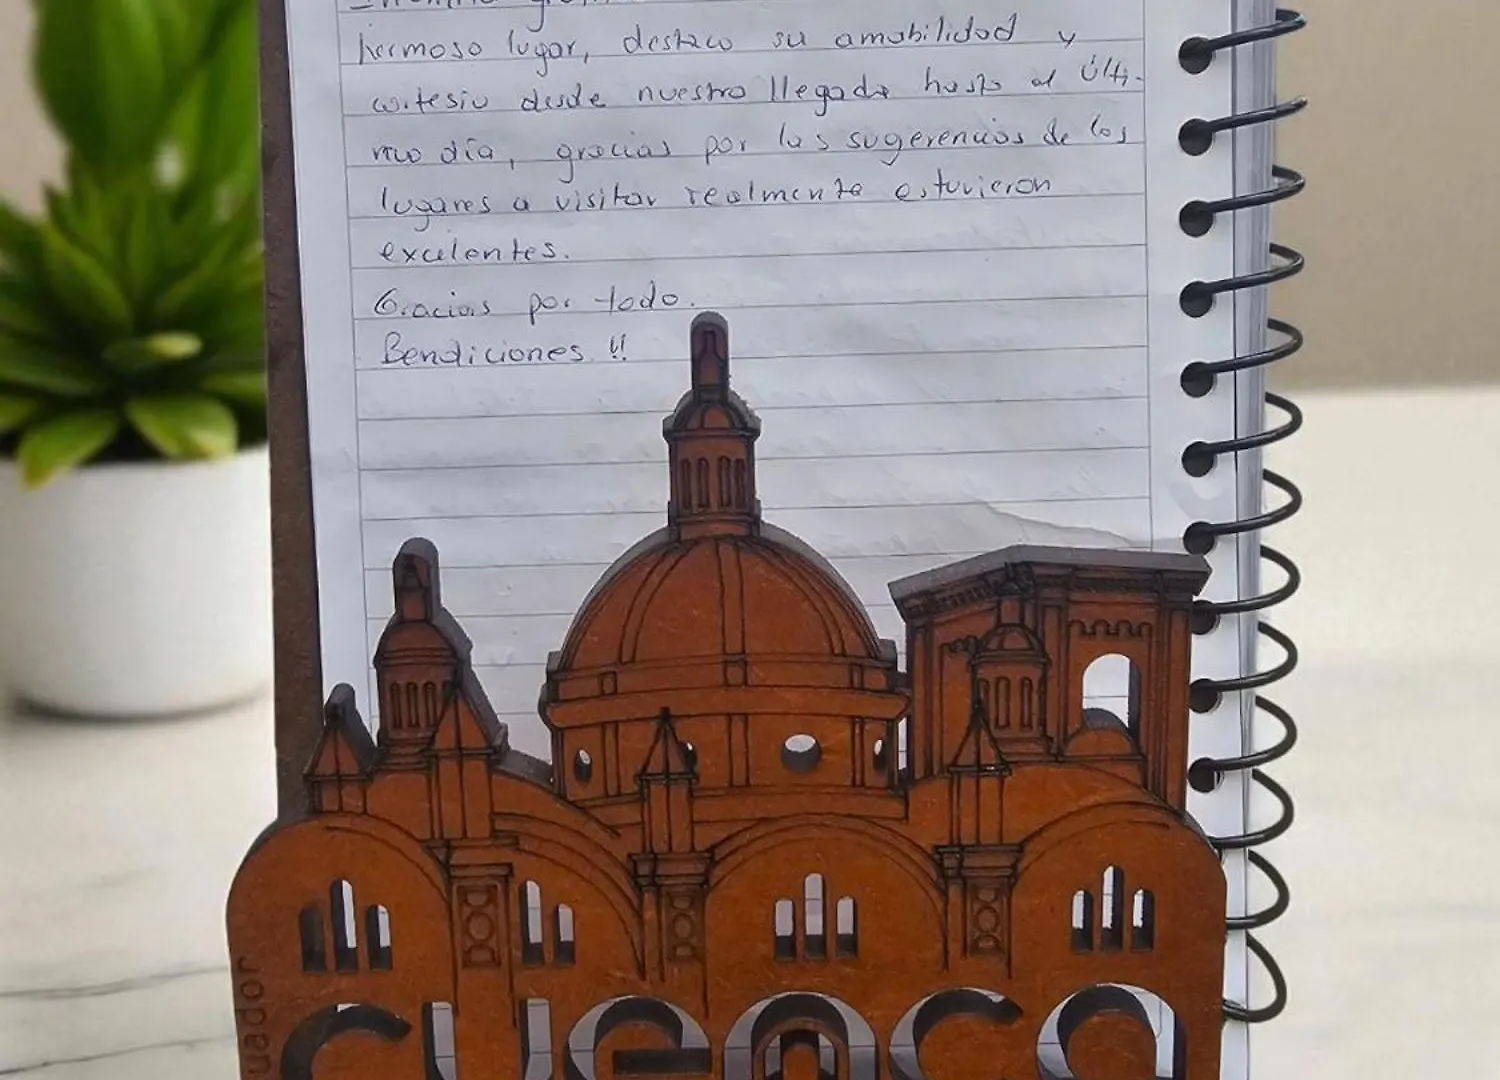 hermoso lugar, destaco su amabilidad y
cortesia desde nuestra llegada hasta el últi-
mo día, gracias por las sugerencias de los
lugares a visitar realmente estuvieron
excelentes.
Gracias por todo.
Bendiciones !!
uador
cuenca